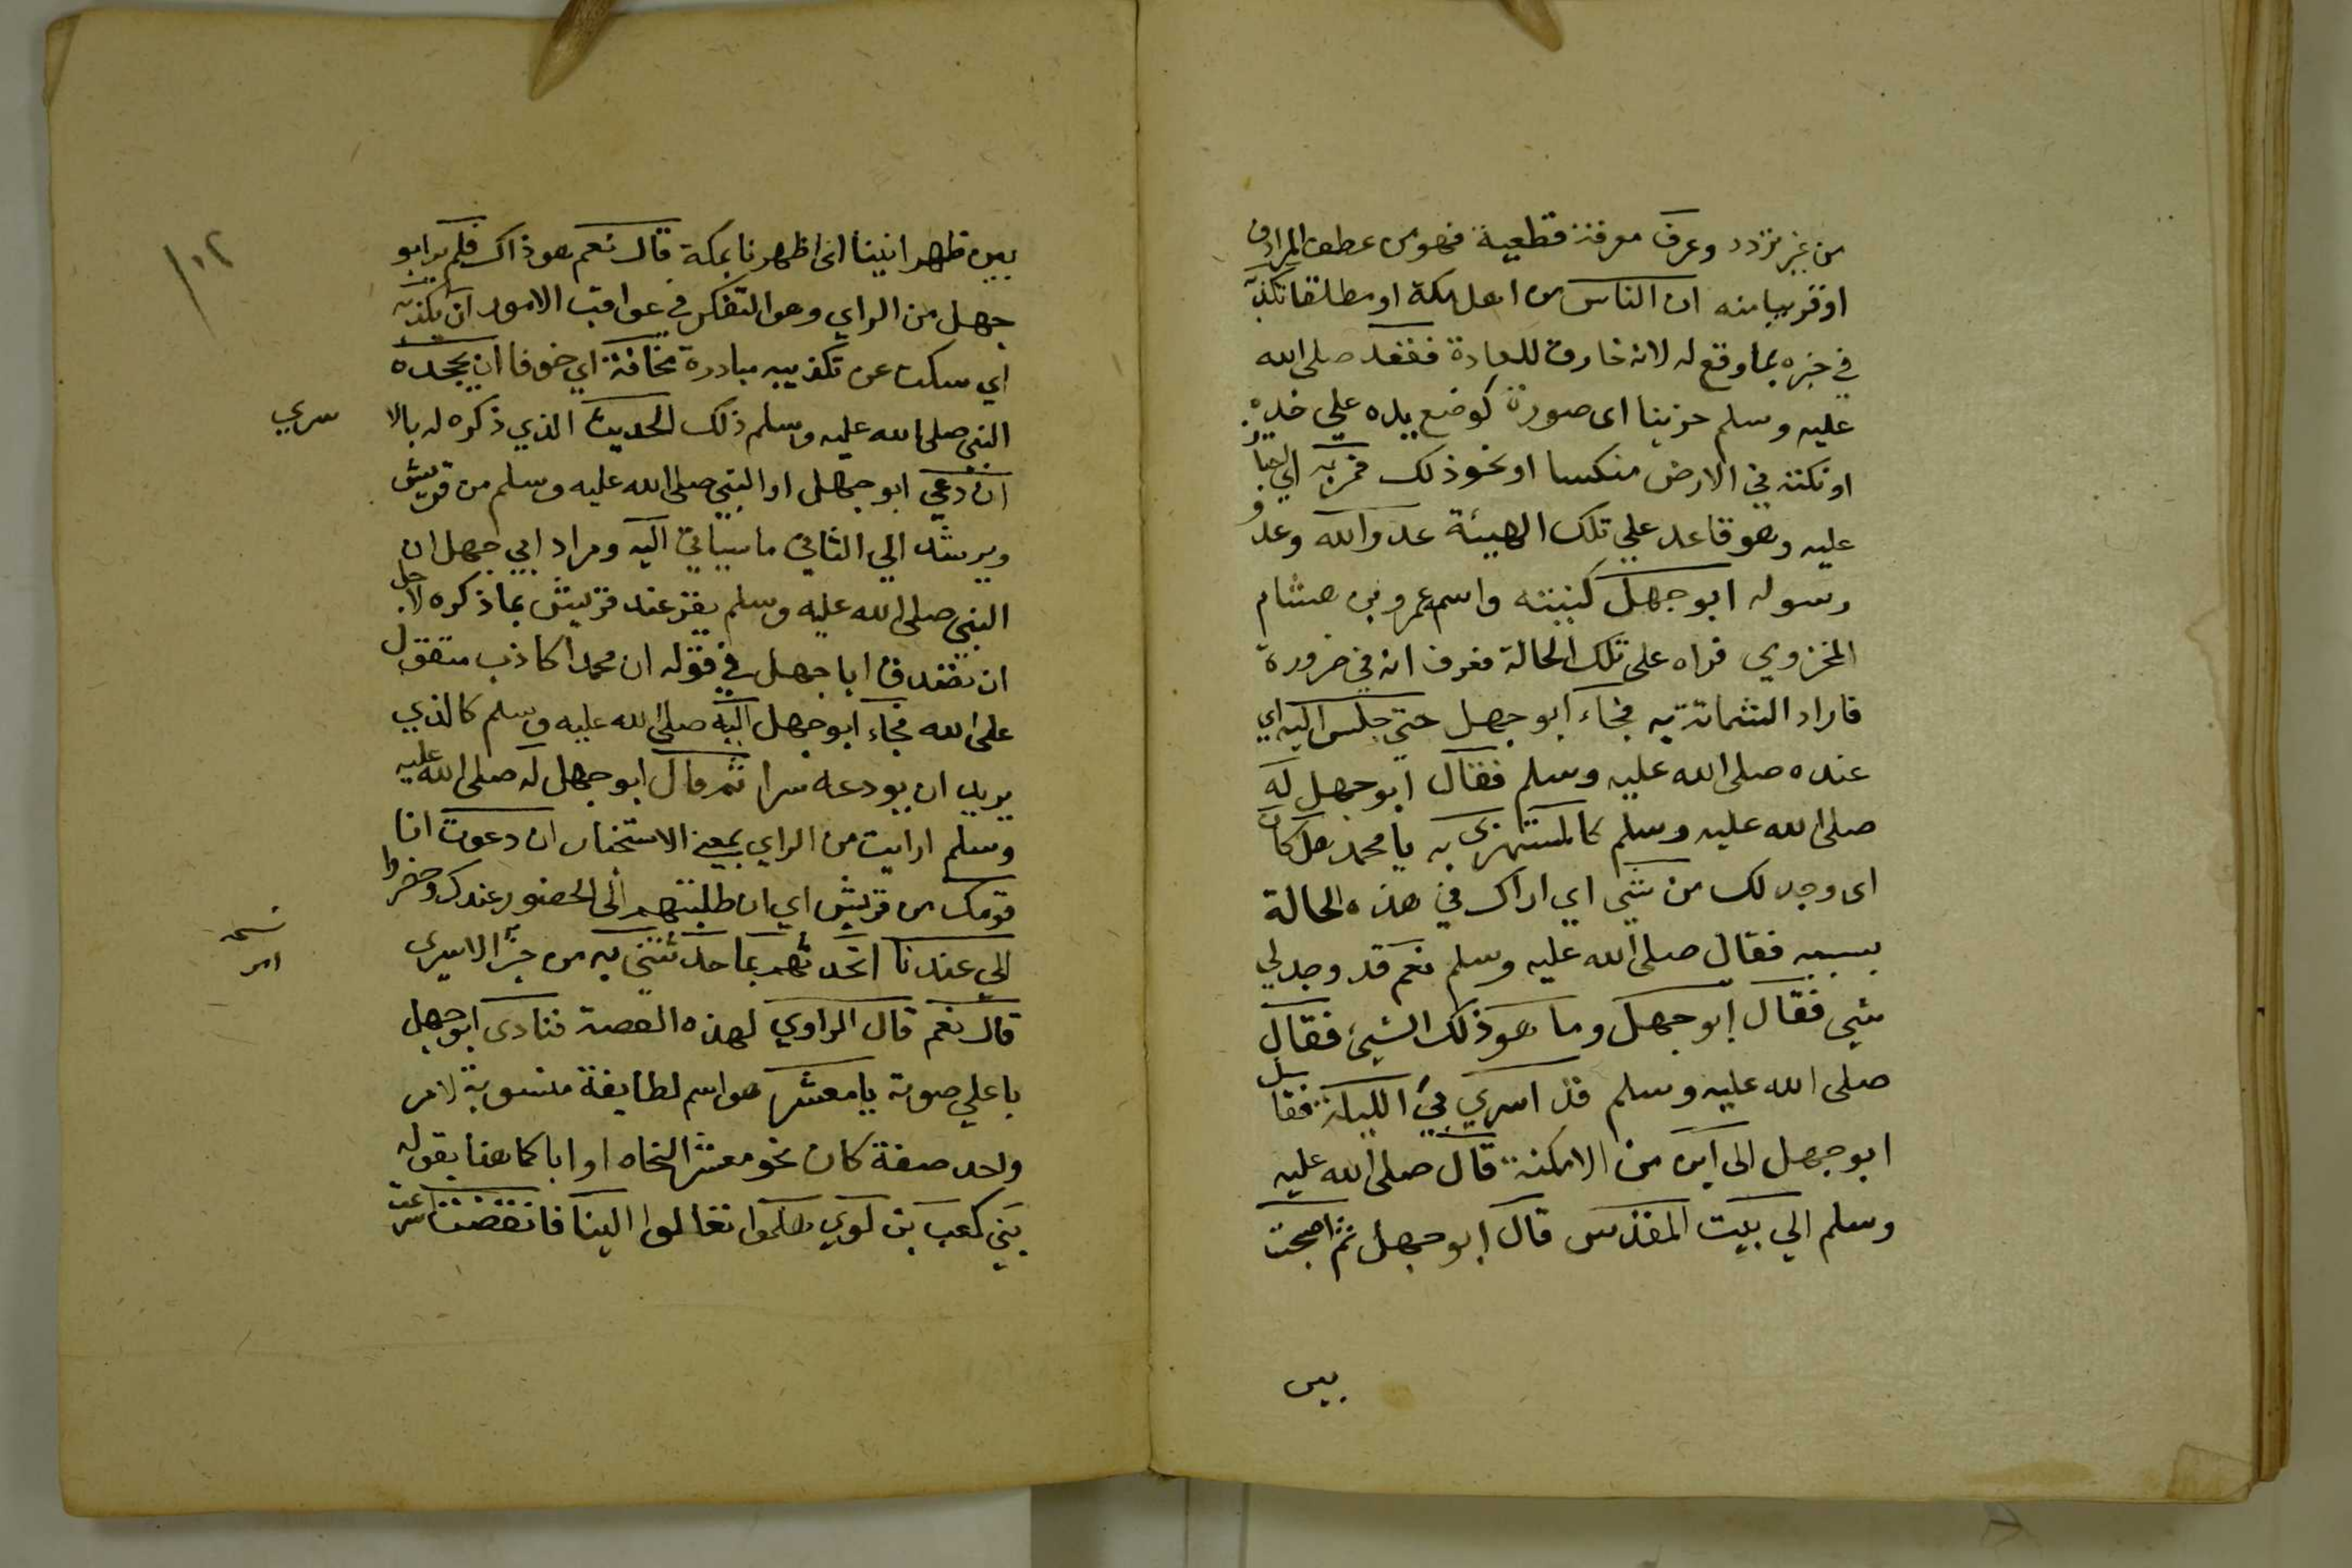 من غير تردد وعرف معرفة قطعية فهو من عطف المرادف
او قريبا منه ان الناس من اهل مكة او مطلقا تكذبه
في خبره بما وقع له لانه خارق للعادة فقعد صلى الله
عليه وسلم حزينا اى صورة كوضع يده علي خده
او نكته في الارض منكسا او نحو ذلك فمر به اي
عليه وهو قاعد علي تلك الهيئة عدو الله وعدو
رسوله ابو جهل كنيته واسمه عمرو بن هشام
المخزومي فراه على تلك الحالة فعرف انه في ضرورة
فاراد الشماتة به فجاء ابو جهل حتي جلس اليه اي
عنده صلى الله عليه وسلم فقال ابو جهل له
صلى الله عليه وسلم كالمستهزى به يا محمد هل كان
اى وجد لك من شي اي اراك في هذه الحالة
بسببه فقال صلى الله عليه وسلم نعم قد وجد لي
شي فقال ابو جهل وما هو ذلك الشيء فقال
صلى الله عليه وسلم قد اسري بي الليلة فقال
ابو جهل الى اين من الامكنة قال صلى الله عليه
وسلم الي بيت المقدس قال ابو جهل ثم اصبحت
بين
١٠٢
بين ظهرانينا اى اظهرنا بمكة قال نعم هو ذاك فلم ير ابو
جهل من الراي وهو التفكر في عواقب الامور ان يكذبه
اي سكت عن تكذيبه مبادرة مخافة اي خوفا ان يجحده
النبي صلى الله عليه وسلم ذلك الحديث الذي ذكره له بالا
سري
ان دعي ابو جهل او النبي صلى الله عليه وسلم من قريش
ويرشد الي الثاني ما سياتي اليه ومراد ابي جهل ان
النبي صلى الله عليه وسلم يقر عند قريش بما ذكره لاجل
ان تصدق ابا جهل في قوله ان محمدا كاذب متقول
على الله فجاء ابو جهل اليه صلى الله عليه وسلم كالذي
يريد ان يودعه سرا ثم قال ابو جهل له صلى الله عليه
وسلم ارايت من الراي بمعني الاستخبار ان دعوت انا
قومك من قريش اي ان طلبتهم الى الحضور عندك وحضروا
الي عندنا اتحدثهم بما حدثتني به من خبر الاسرى
نسخه
امر
قال نعم قال الراوي لهذه القصة فنادى ابو جهل
باعلي صوته يا معشر هو اسم لطايفة منسوبة لامر
واحد صفة كان نحو معشر النحاه او ابا كما هنا بقوله
بني كعب بن لوي هلموا تعالوا الينا فانفضت اسرعت